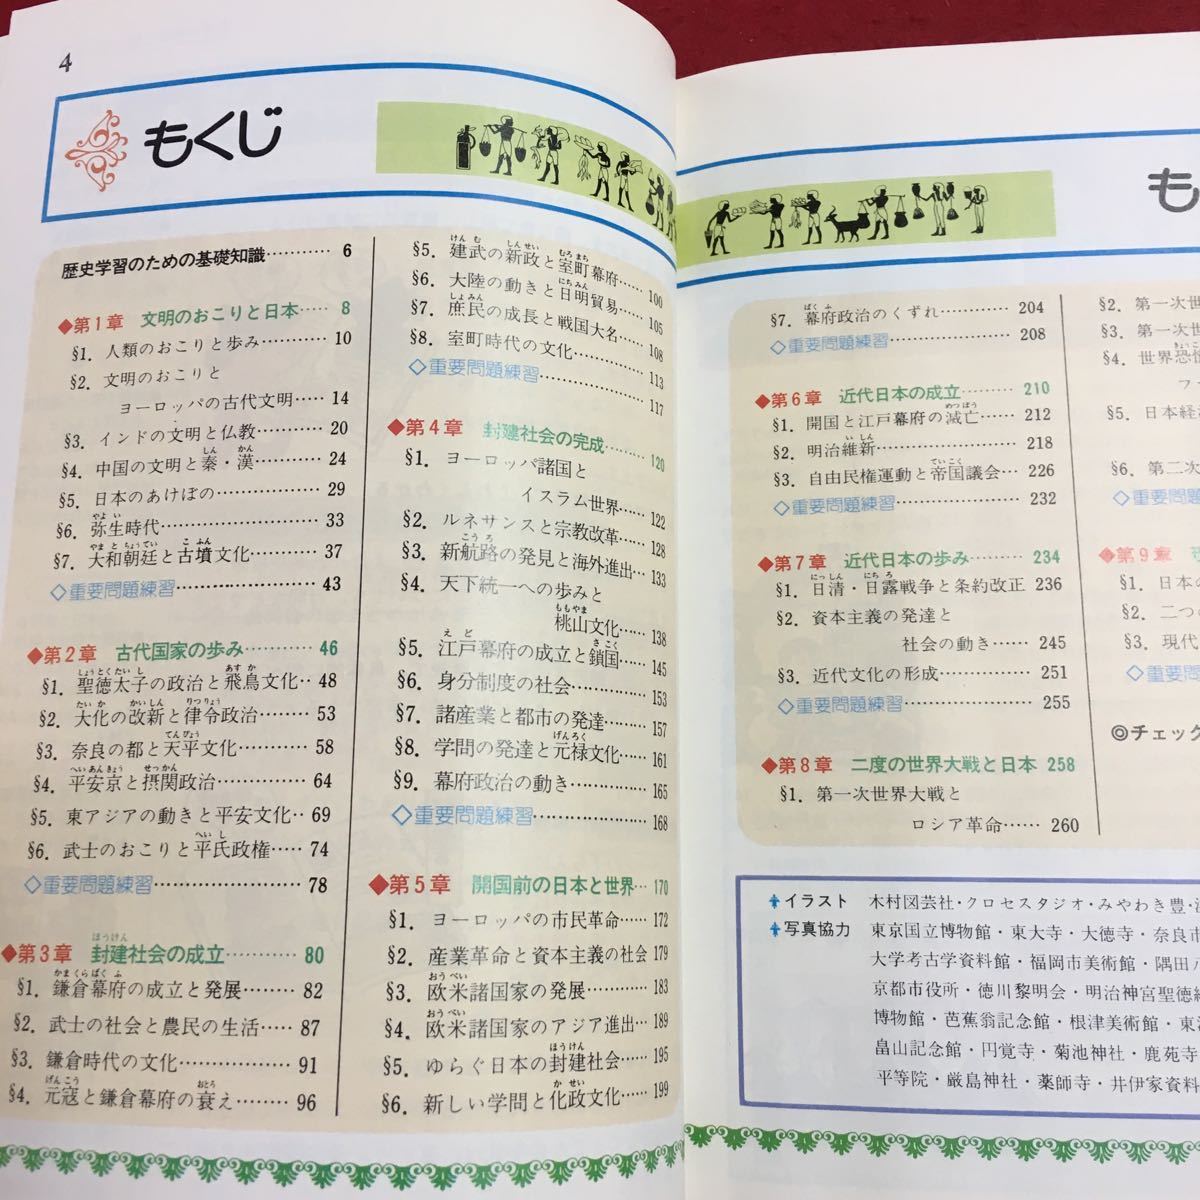 4
もくじ
歴史学習のための基礎知識………… 6
◆第1章 文明のおこりと日本…… 8
§1. 人類のおこりと歩み………… 10
§2. 文明のおこりと
ヨーロッパの古代文明…… 14
§3. インドの文明と仏教………… 20
§4. 中国の文明と秦・漢………… 24
§5. 日本のあけぼの……………… 29
§6. 弥生時代……………………… 33
§7. 大和朝廷と古墳文化………… 37
◇重要問題練習…………………… 43
◆第2章 古代国家の歩み………… 46
§1. 聖徳太子の政治と飛鳥文化… 48
§2. 大化の改新と律令政治……… 53
§3. 奈良の都と天平文化………… 58
§4. 平安京と摂関政治…………… 64
§5. 東アジアの動きと平安文化… 69
§6. 武士のおこりと平氏政権…… 74
◇重要問題練習…………………… 78
◆第3章 封建社会の成立………… 80
§1. 鎌倉幕府の成立と発展……… 82
§2. 武士の社会と農民の生活…… 87
§3. 鎌倉時代の文化……………… 91
§4. 元寇と鎌倉幕府の衰え……… 96
§5. 建武の新政と室町幕府…… 100
§6. 大陸の動きと日明貿易…… 105
§7. 庶民の成長と戦国大名…… 108
§8. 室町時代の文化…………… 113
◇重要問題練習………………… 117
◆第4章 封建社会の完成……… 120
§1. ヨーロッパ諸国と
イスラム世界…… 122
§2. ルネサンスと宗教改革…… 128
§3. 新航路の発見と海外進出… 133
§4. 天下統一への歩みと
桃山文化…… 138
§5. 江戸幕府の成立と鎖国…… 145
§6. 身分制度の社会…………… 153
§7. 諸産業と都市の発達……… 157
§8. 学問の発達と元禄文化…… 161
§9. 幕府政治の動き…………… 165
◇重要問題練習………………… 168
◆第5章 開国前の日本と世界… 170
§1. ヨーロッパの市民革命…… 172
§2. 産業革命と資本主義の社会 179
§3. 欧米諸国家の発展………… 183
§4. 欧米諸国家のアジア進出… 189
§5. ゆらぐ日本の封建社会…… 195
§6. 新しい学問と化政文化…… 199
も
§7. 幕府政治のくずれ………… 204
◇重要問題練習………………… 208
◆第6章 近代日本の成立……… 210
§1. 開国と江戸幕府の滅亡…… 212
§2. 明治維新…………………… 218
§3. 自由民権運動と帝国議会… 226
◇重要問題練習………………… 232
◆第7章 近代日本の歩み……… 234
§1. 日清・日露戦争と条約改正 236
§2. 資本主義の発達と
社会の動き…… 245
§3. 近代文化の形成…………… 251
◇重要問題練習………………… 255
◆第8章 二度の世界大戦と日本 258
§1. 第一次世界大戦と
ロシア革命…… 260
§2. 第一次世
§3. 第一次世
§4. 世界恐
フ
§5. 日本経
§6. 第二次
◇重要問題
◆第9章
§1. 日本の
§2. 二つの
§3. 現代
◇重要問
◎チェック
イラスト 木村図芸社・クロセスタジオ・みやわき豊・
写真協力 東京国立博物館・東大寺・大徳寺・奈良市
大学考古学資料館・福岡市美術館・隅田八
京都市役所・徳川黎明会・明治神宮聖徳
博物館・芭蕉翁記念館・根津美術館・東
畠山記念館・円覚寺・菊池神社・鹿苑寺
平等院・厳島神社・薬師寺・井伊家資料